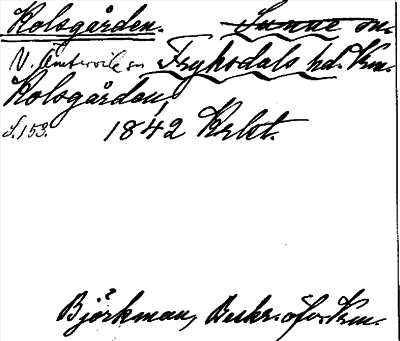 Kolsgården. Sunne sn.
N. Ämtervik sn Fryksdals hd. Vrm.
Kolsgården,
S. 153. 1842 Krlst.
Björkman, Beskr. öfv. Vrm.